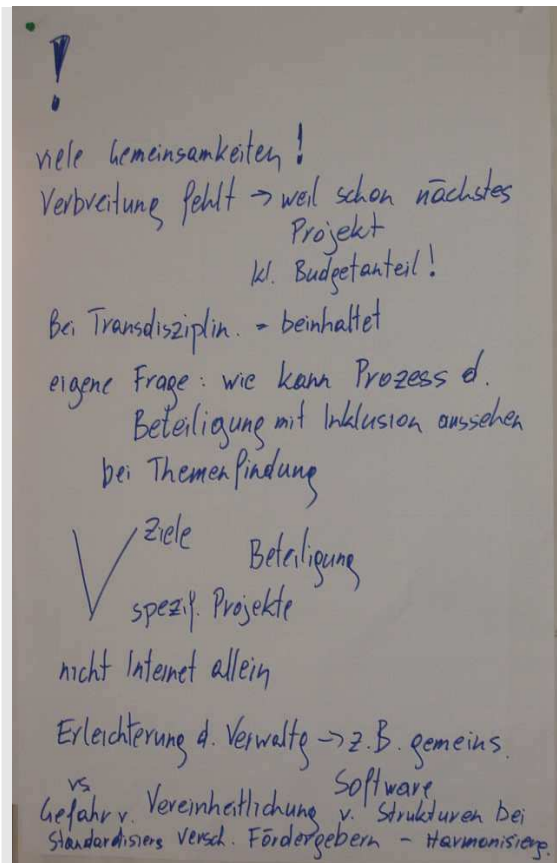 !
viele Gemeinsamkeiten!
Verbreitung fehlt → weil schon nächstes
Projekt
kl. Budgetanteil!
Bei Transdisziplin. - beinhaltet
eigene Frage: wie kann Prozess d.
Beteiligung mit Inklusion aussehen
bei Themenfindung
Ziele
Beteiligung
spezif. Projekte
nicht Internet allein
Erleichterung d. Verwaltg → z.B. gemeins.
Software
vs
Gefahr v. Vereinheitlichung v. Strukturen bei
Standardisierg versch. Fördergebern - Harmonisierg.